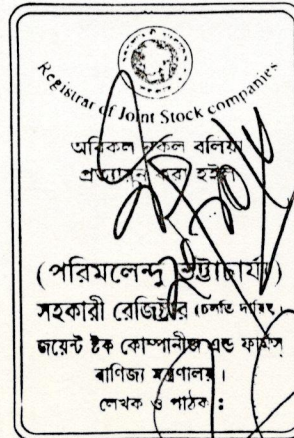 Registrar of Joint Stock companies
অবিকল নকল বলিয়া
প্রত্যায়ন করা হইল
(পরিমলেন্দু ভট্টাচার্য্য)
সহকারী রেজিষ্ট্রার (চলতি দায়িত্ব)
জয়েন্ট ষ্টক কোম্পানীজ এন্ড ফার্মস্
বাণিজ্য মন্ত্রণালয়।
লেখক ও পাঠক :